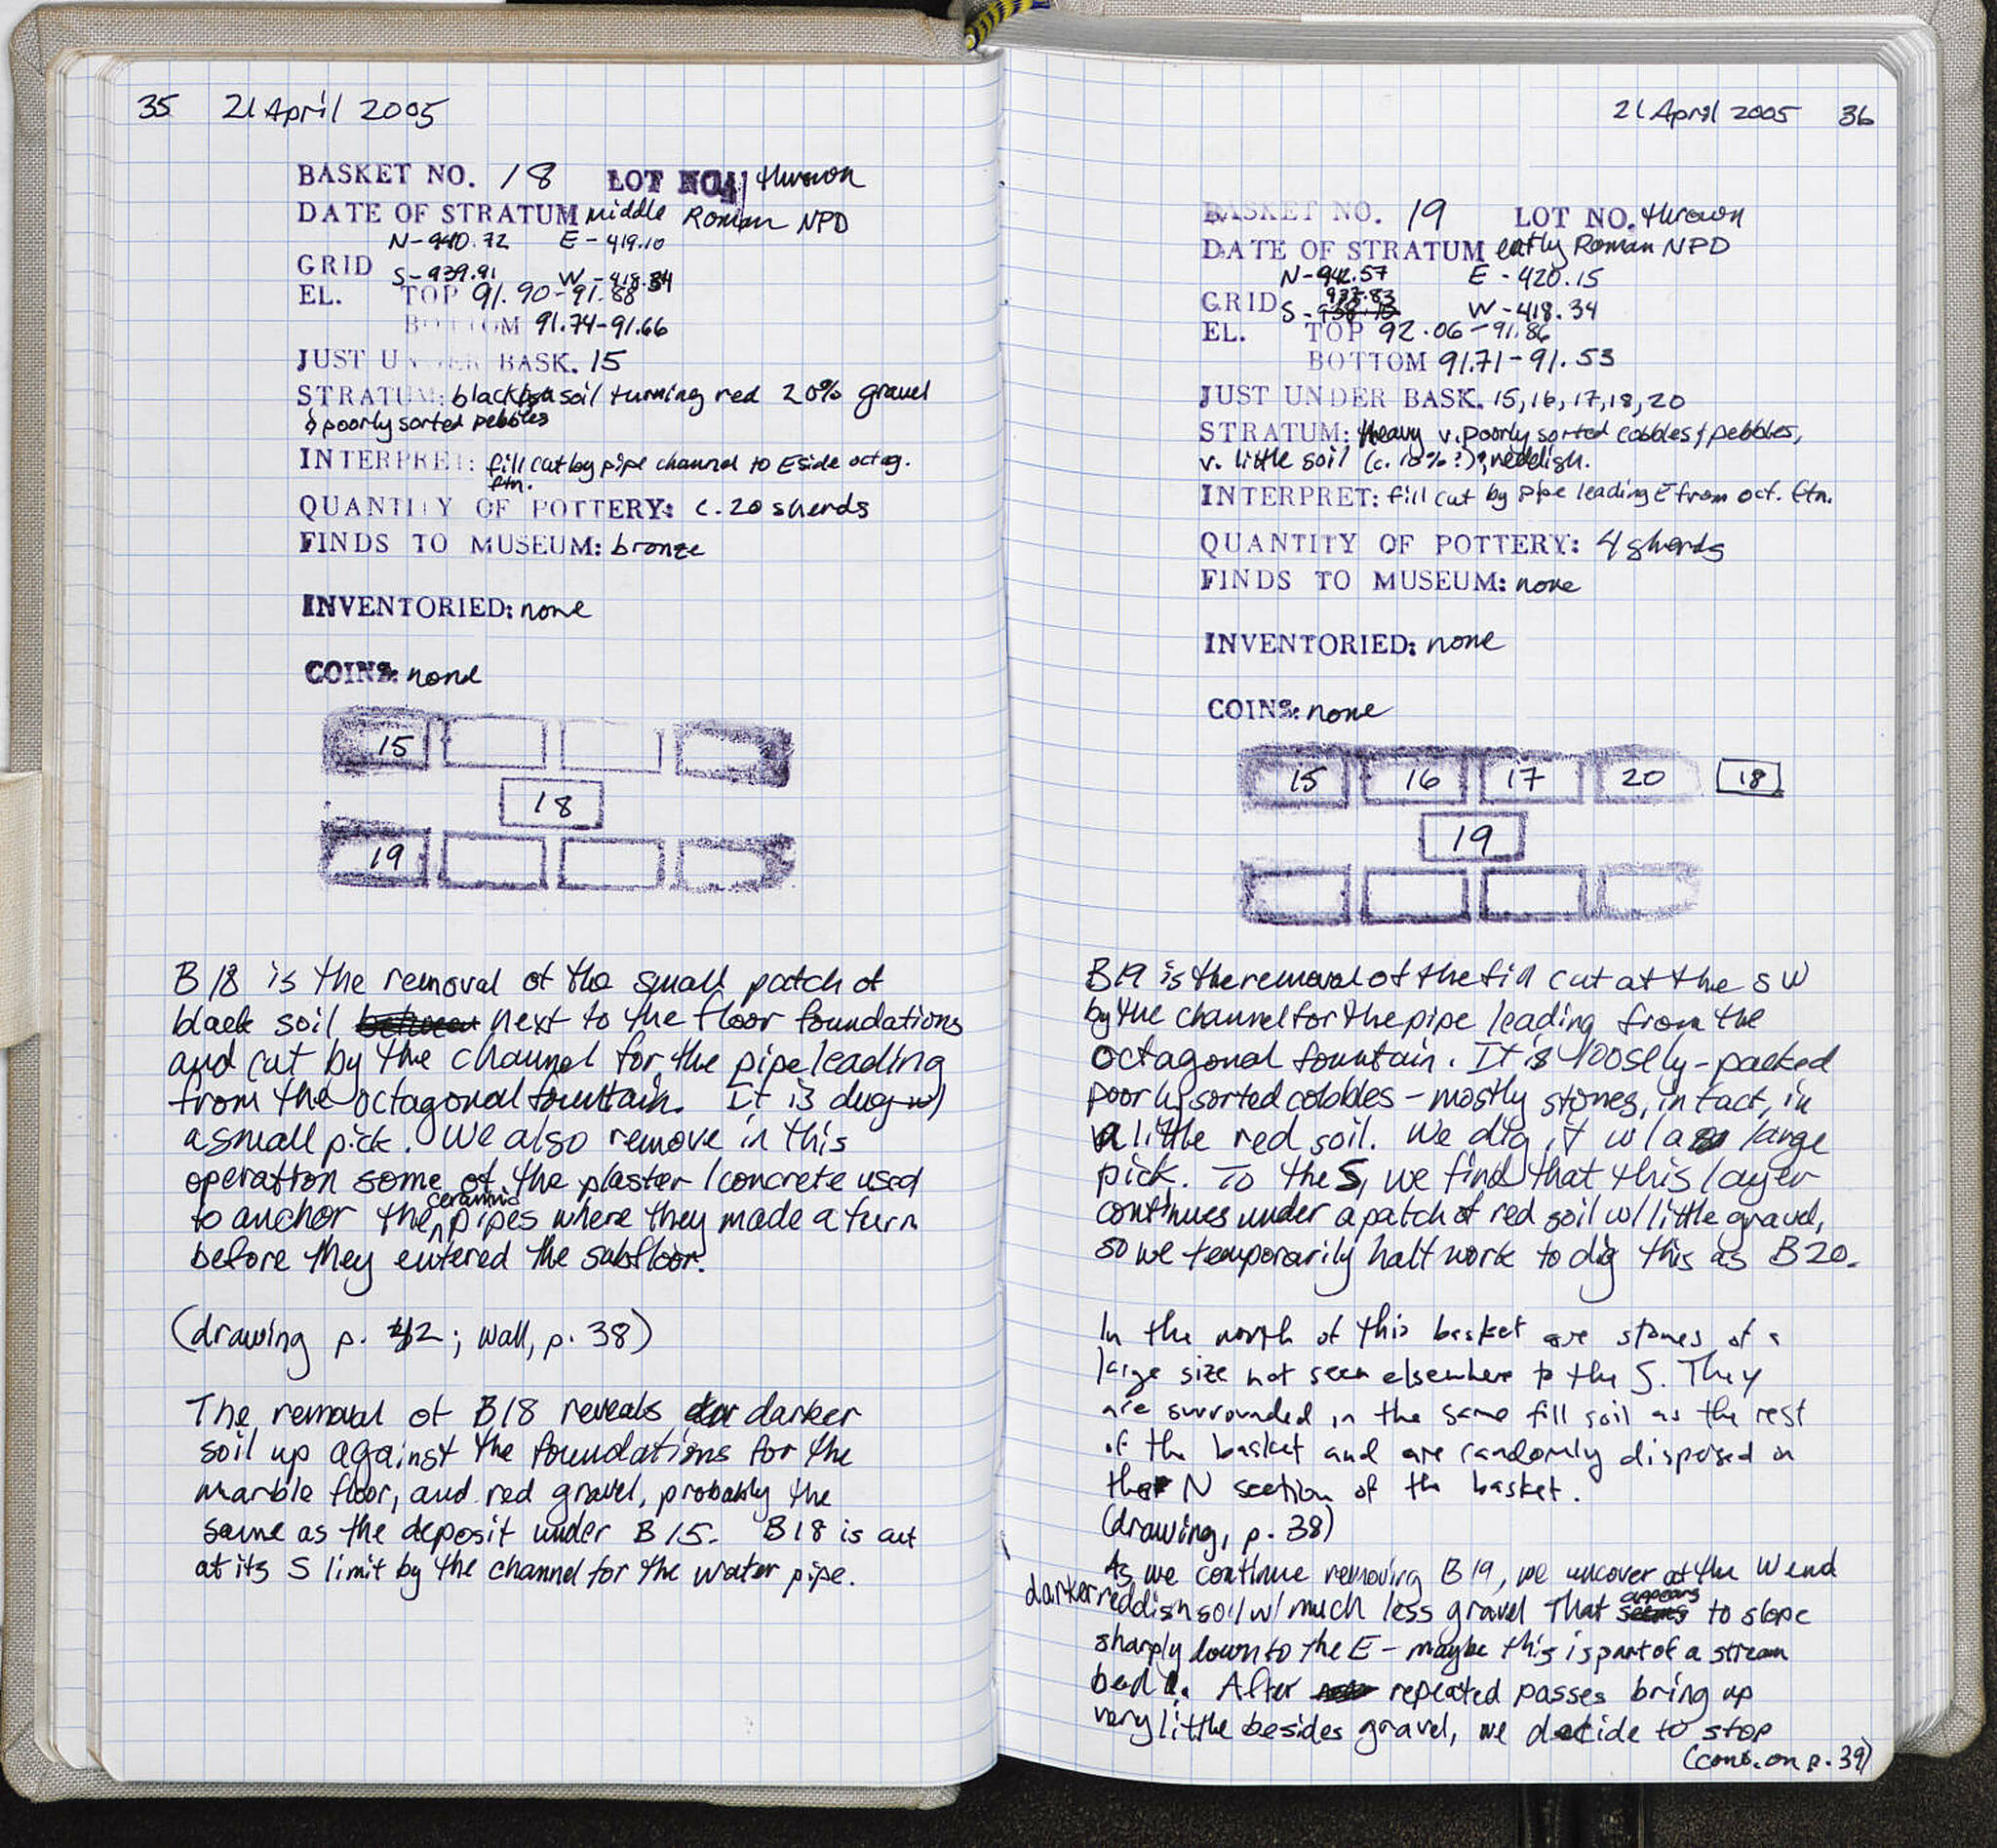 35 21 April 2005
BASKET NO. 18 LOT NO. thrown
DATE OF STRATUM middle Roman NPD
N-940.72 E-419.10
GRID S-939.91 W-418.34
EL. TOP 91.90-91.88
BOTTOM 91.74-91.66
JUST UNDER BASK. 15
STRATUM: black soil turning red 20% gravel
& poorly sorted pebbles
INTERPRET: fill cut by pipe channel to E side octag.
ftn.
QUANTITY OF POTTERY: c. 20 sherds
FINDS TO MUSEUM: bronze
INVENTORIED: none
COINS: none
15
18
19
B18 is the removal of the small patch of
black soil between next to the floor foundations
and cut by the channel for the pipe leading
from the octagonal fountain. It is dug w/
a small pick. We also remove in this
operation some of the plaster/concrete used
to anchor the ceramic pipes where they made a turn
before they entered the subfloor.
(drawing p. 42; wall, p. 38)
The removal of B18 reveals darker
soil up against the foundations for the
marble floor, and red gravel, probably the
same as the deposit under B15. B18 is cut
at its S limit by the channel for the water pipe.
21 April 2005 36
BASKET NO. 19 LOT NO. thrown
DATE OF STRATUM early Roman NPD
N-942.57 E-420.15
GRID S-938.13 937.83 W-418.34
EL. TOP 92.06-91.86
BOTTOM 91.71-91.53
JUST UNDER BASK. 15, 16, 17, 18, 20
STRATUM: Heavy v. poorly sorted cobbles & pebbles,
v. little soil (c. 10%?), reddish.
INTERPRET: fill cut by pipe leading E from oct. ftn.
QUANTITY OF POTTERY: 4 sherds
FINDS TO MUSEUM: none
INVENTORIED: none
COINS: none
15 16 17 20 18
19
B19 is the removal of the fill cut at the SW
by the channel for the pipe leading from the
octagonal fountain. It is loosely-packed
poorly sorted cobbles - mostly stones, in fact, in
a little red soil. We dig it w/ a large
pick. To the S, we find that this layer
continues under a patch of red soil w/ little gravel,
so we temporarily halt work to dig this as B20.
In the north of this basket are stones of a
large size not seen elsewhere to the S. They
are surrounded in the same fill soil as the rest
of the basket and are randomly disposed in
the N section of the basket.
(drawing, p. 38)
As we continue removing B19, we uncover at the W end
darker reddish soil w/ much less gravel that seems appears to slope
sharply down to the E - maybe this is part of a stream
bed. After repeated passes bring up
very little besides gravel, we decide to stop
(cont. on p. 39)